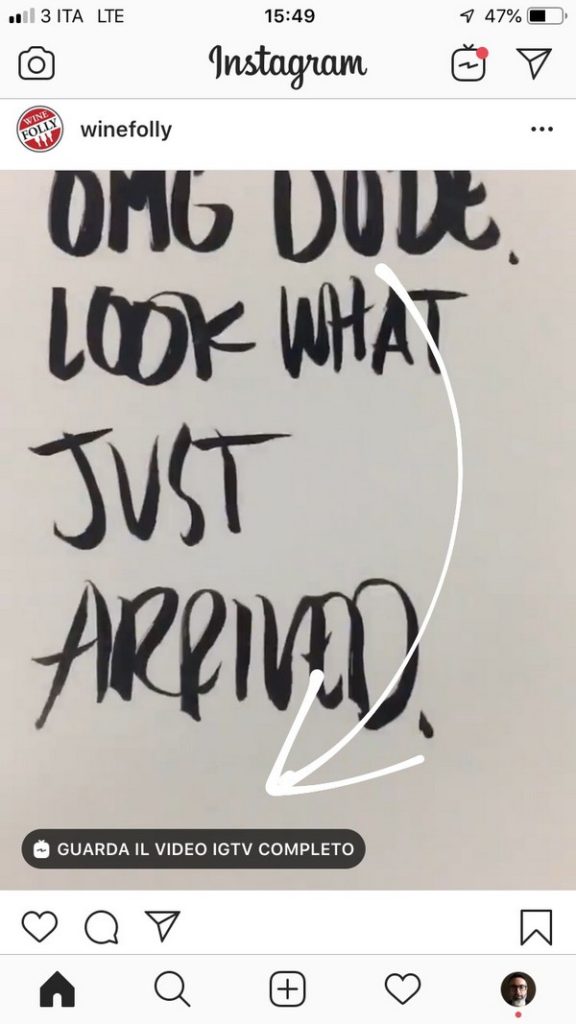 3 ITA LTE 15:49 47%
Instagram
WINE FOLLY winefolly
OMG DUDE.
LOOK WHAT
JUST
ARRIVED.
GUARDA IL VIDEO IGTV COMPLETO